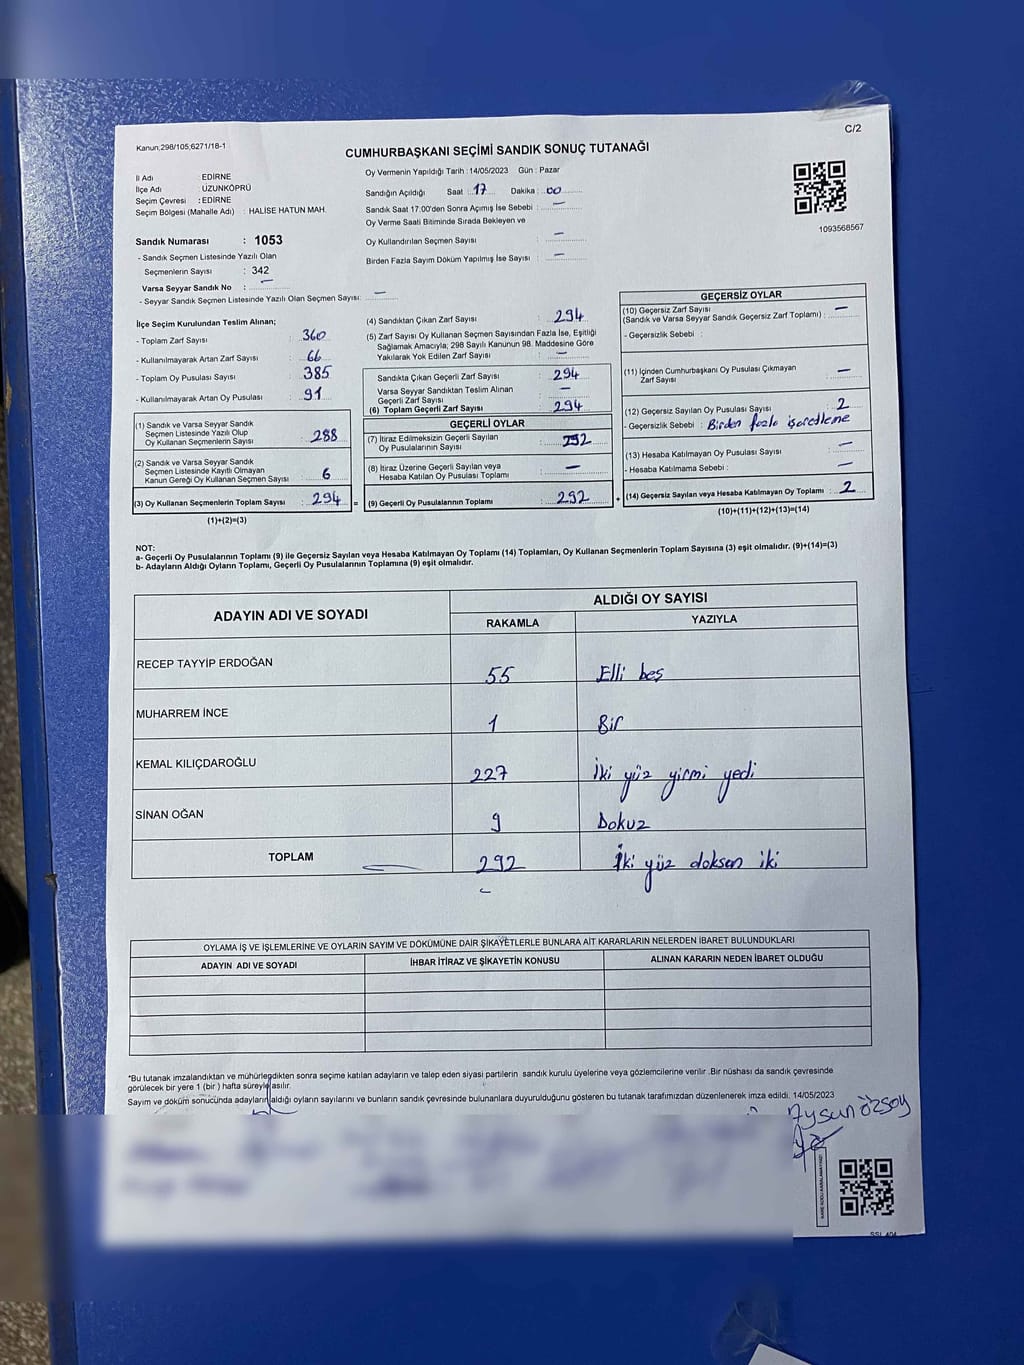 Kanun;298/105;6271/18-1
C/2
CUMHURBAŞKANI SEÇİMİ SANDIK SONUÇ TUTANAĞI
İl Adı : EDİRNE
İlçe Adı : UZUNKÖPRÜ
Seçim Çevresi : EDİRNE
Seçim Bölgesi (Mahalle Adı) : HALİSE HATUN MAH.
Sandık Numarası : 1053
- Sandık Seçmen Listesinde Yazılı Olan
Seçmenlerin Sayısı : 342
Varsa Seyyar Sandık No : –
- Seyyar Sandık Seçmen Listesinde Yazılı Olan Seçmen Sayısı: –
Oy Vermenin Yapıldığı Tarih : 14/05/2023 Gün : Pazar
Sandığın Açıldığı Saat : 17 Dakika : 00
Sandık Saat 17:00'den Sonra Açımış İse Sebebi : –
Oy Verme Saati Bitiminde Sırada Bekleyen ve
Oy Kullandırılan Seçmen Sayısı : –
Birden Fazla Sayım Döküm Yapılmış İse Sayısı : –
1093568567
İlçe Seçim Kurulundan Teslim Alınan;
- Toplam Zarf Sayısı : 360
- Kullanılmayarak Artan Zarf Sayısı : 66
- Toplam Oy Pusulası Sayısı : 385
- Kullanılmayarak Artan Oy Pusulası : 91
(1) Sandık ve Varsa Seyyar Sandık
Seçmen Listesinde Yazılı Olup
Oy Kullanan Seçmenlerin Sayısı : 288
(2) Sandık ve Varsa Seyyar Sandık
Seçmen Listesinde Kayıtlı Olmayan
Kanun Gereği Oy Kullanan Seçmen Sayısı : 6
(3) Oy Kullanan Seçmenlerin Toplam Sayısı : 294 =
(1)+(2)=(3)
(4) Sandıktan Çıkan Zarf Sayısı : 294
(5) Zarf Sayısı Oy Kullanan Seçmen Sayısından Fazla İse, Eşitliği
Sağlamak Amacıyla; 298 Sayılı Kanunun 98. Maddesine Göre
Yakılarak Yok Edilen Zarf Sayısı : –
Sandıkta Çıkan Geçerli Zarf Sayısı : 294
Varsa Seyyar Sandıktan Teslim Alınan
Geçerli Zarf Sayısı : –
(6) Toplam Geçerli Zarf Sayısı : 294
GEÇERLİ OYLAR
(7) İtiraz Edilmeksizin Geçerli Sayılan
Oy Pusulalarının Sayısı : 292
(8) İtiraz Üzerine Geçerli Sayılan veya
Hesaba Katılan Oy Pusulası Toplamı : –
(9) Geçerli Oy Pusulalarının Toplamı : 292 +
GEÇERSİZ OYLAR
(10) Geçersiz Zarf Sayısı
(Sandık ve Varsa Seyyar Sandık Geçersiz Zarf Toplamı) : –
- Geçersizlik Sebebi :
(11) İçinden Cumhurbaşkanı Oy Pusulası Çıkmayan
Zarf Sayısı : –
(12) Geçersiz Sayılan Oy Pusulası Sayısı : 2
- Geçersizlik Sebebi : Birden fazla işaretleme
(13) Hesaba Katılmayan Oy Pusulası Sayısı : –
- Hesaba Katılmama Sebebi : –
(14) Geçersiz Sayılan veya Hesaba Katılmayan Oy Toplamı : 2
(10)+(11)+(12)+(13)=(14)
NOT:
a- Geçerli Oy Pusulalarının Toplamı (9) ile Geçersiz Sayılan veya Hesaba Katılmayan Oy Toplamı (14) Toplamları, Oy Kullanan Seçmenlerin Toplam Sayısına (3) eşit olmalıdır. (9)+(14)=(3)
b- Adayların Aldığı Oyların Toplamı, Geçerli Oy Pusulalarının Toplamına (9) eşit olmalıdır.
ADAYIN ADI VE SOYADI
ALDIĞI OY SAYISI
RAKAMLA YAZIYLA
RECEP TAYYİP ERDOĞAN 55 Elli beş
MUHARREM İNCE 1 Bir
KEMAL KILIÇDAROĞLU 227 İki yüz yirmi yedi
SİNAN OĞAN 9 Dokuz
TOPLAM 292 İki yüz doksan iki
OYLAMA İŞ VE İŞLEMLERİNE VE OYLARIN SAYIM VE DÖKÜMÜNE DAİR ŞİKAYETLERLE BUNLARA AİT KARARLARIN NELERDEN İBARET BULUNDUKLARI
ADAYIN ADI VE SOYADI İHBAR İTİRAZ VE ŞİKAYETİN KONUSU ALINAN KARARIN NEDEN İBARET OLDUĞU
*Bu tutanak imzalandıktan ve mühürlendikten sonra seçime katılan adayların ve talep eden siyasi partilerin sandık kurulu üyelerine veya gözlemcilerine verilir .Bir nüshası da sandık çevresinde
görülecek bir yere 1 (bir ) hafta süreyle asılır.
Sayım ve döküm sonucunda adayların aldığı oyların sayılarını ve bunların sandık çevresinde bulunanlara duyurulduğunu gösteren bu tutanak tarafımızdan düzenlenerek imza edildi. 14/05/2023
Aysun Özsoy